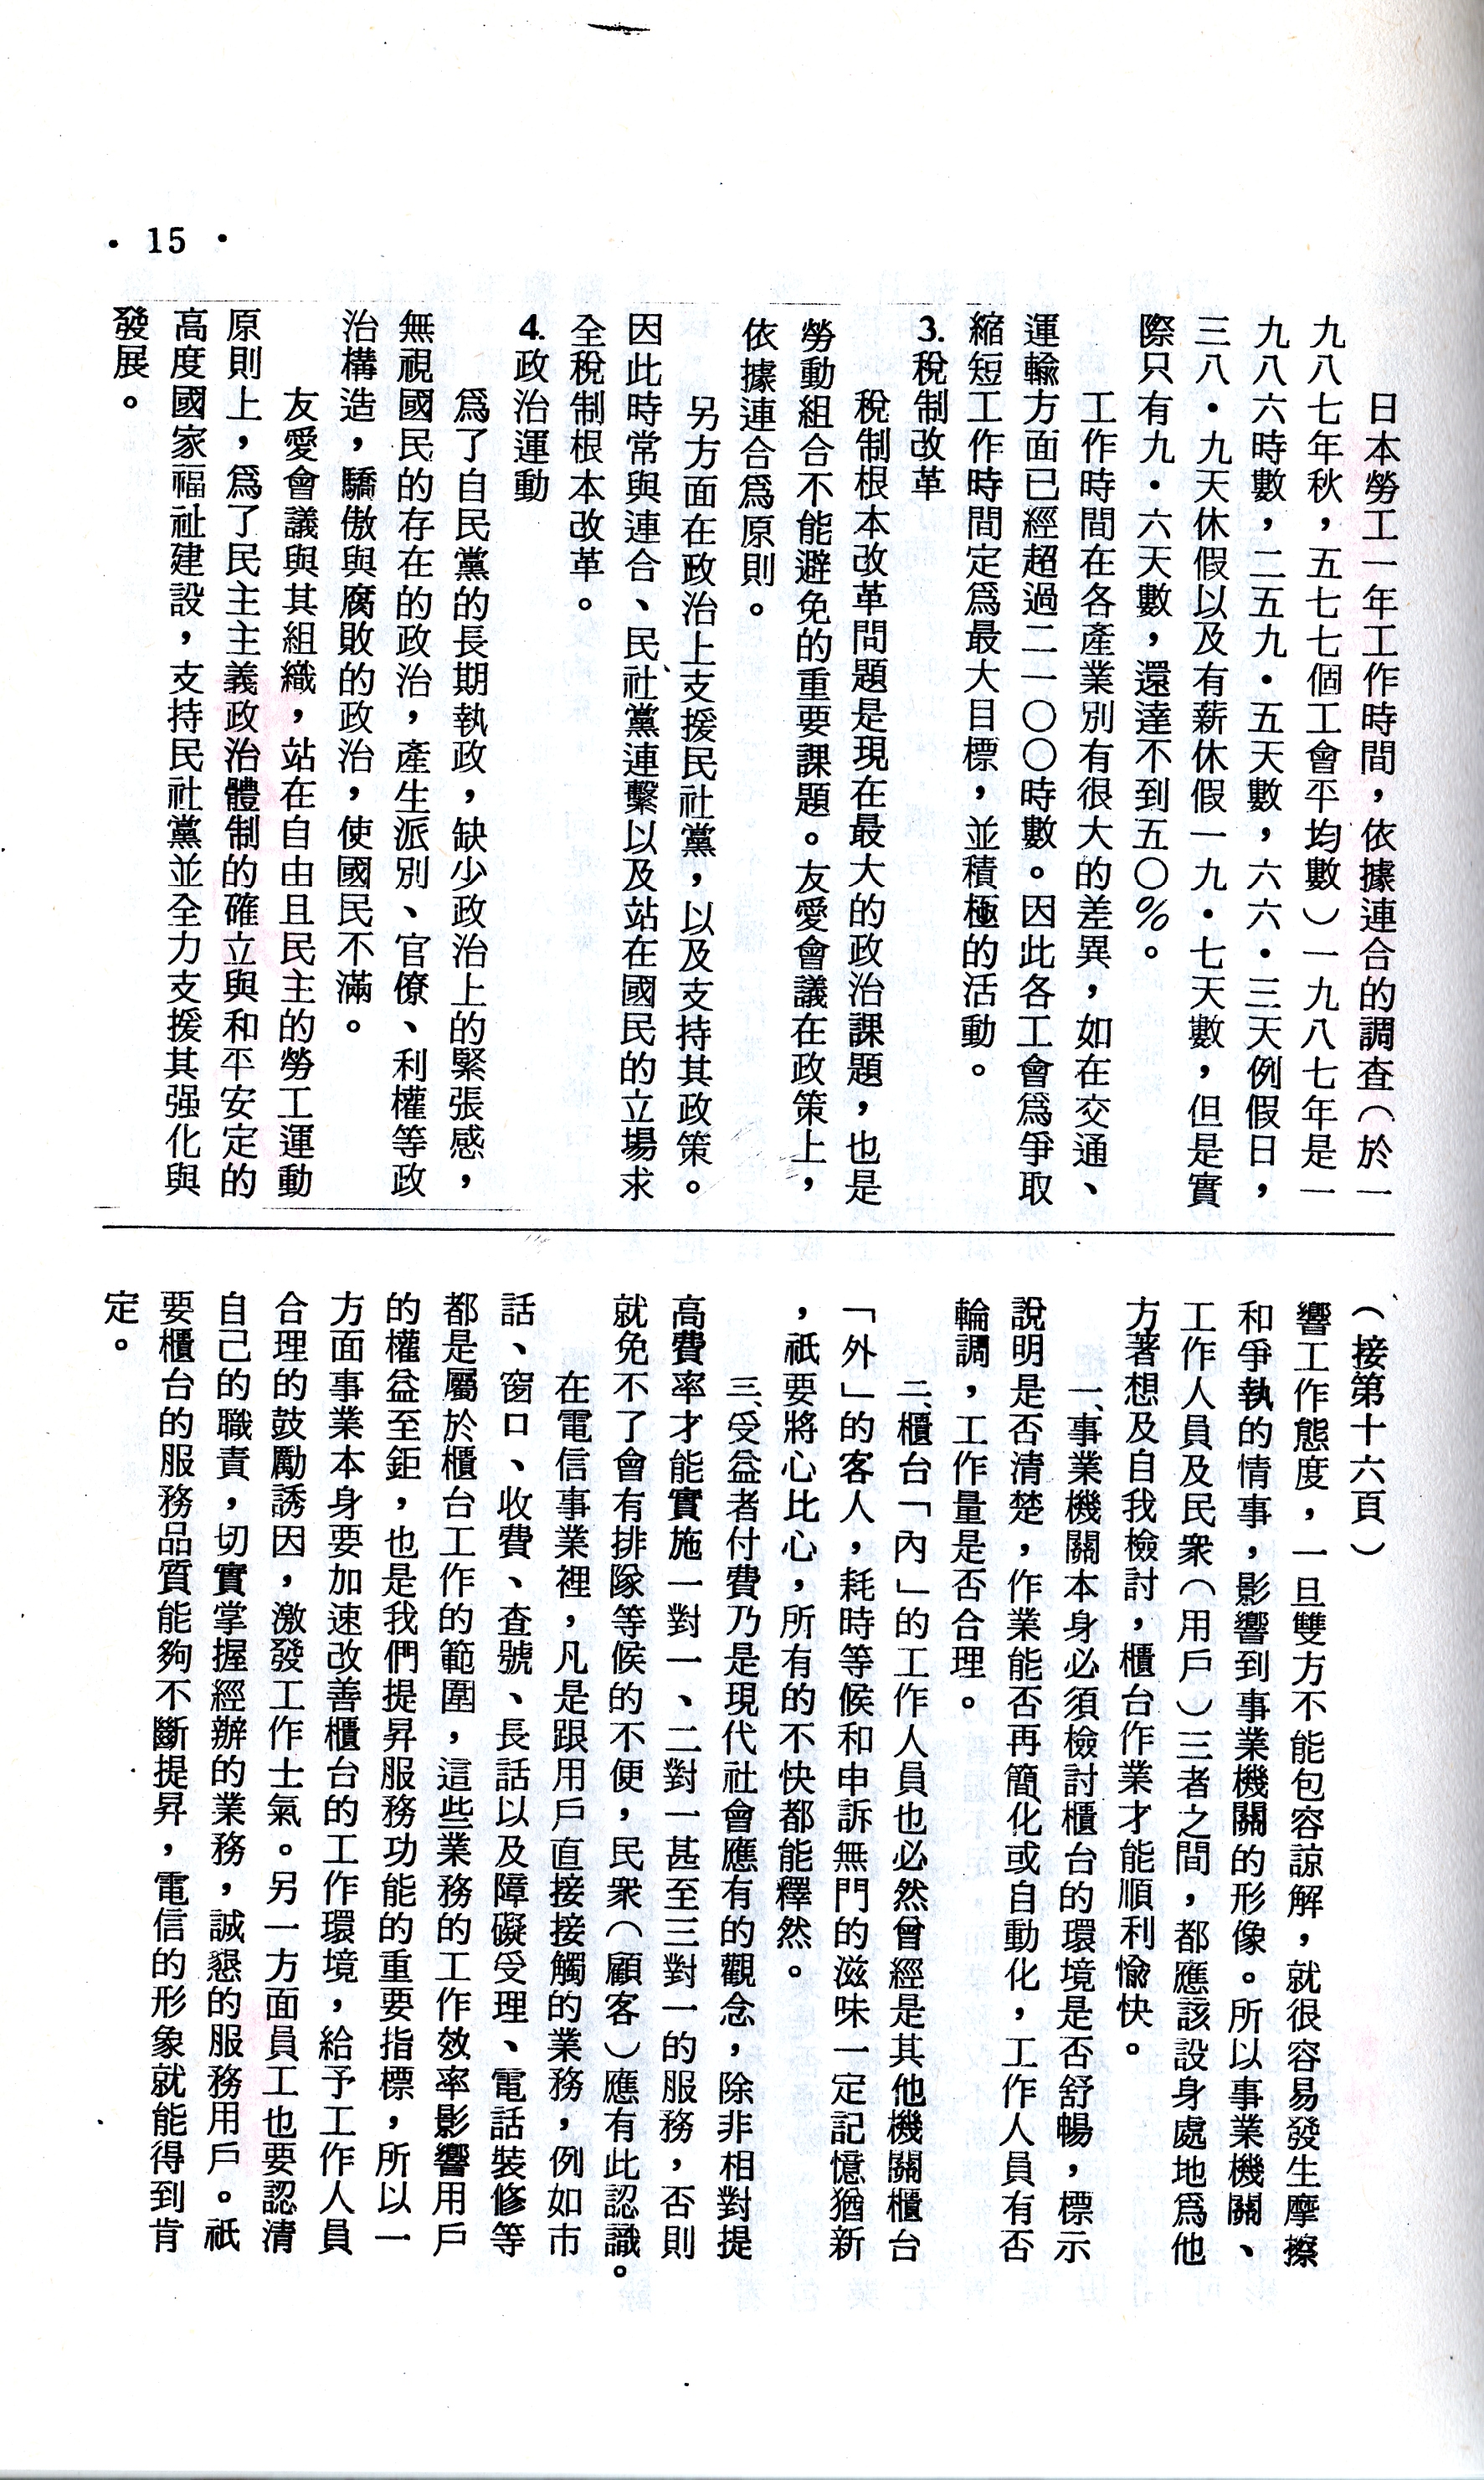 • 15 •
日本勞工一年工作時間，依據連合的調查（於一
九八七年秋，五七七個工會平均數）一九八七年是一
九八六時數，二五九・五天數，六六・三天例假日，
三八・九天休假以及有薪休假一九・七天數，但是實
際只有九・六天數，還達不到五〇％。
工作時間在各產業別有很大的差異，如在交通、
運輸方面已經超過二一〇〇時數。因此各工會爲爭取
縮短工作時間定爲最大目標，並積極的活動。
3.稅制改革
稅制根本改革問題是現在最大的政治課題，也是
勞動組合不能避免的重要課題。友愛會議在政策上，
依據連合爲原則。
另方面在政治上支援民社黨，以及支持其政策。
因此時常與連合、民社黨連繫以及站在國民的立場求
全稅制根本改革。
4.政治運動
爲了自民黨的長期執政，缺少政治上的緊張感，
無視國民的存在的政治，產生派別、官僚、利權等政
治構造，驕傲與腐敗的政治，使國民不滿。
友愛會議與其組織，站在自由且民主的勞工運動
原則上，爲了民主主義政治體制的確立與和平安定的
高度國家福祉建設，支持民社黨並全力支援其强化與
發展。
（接第十六頁）
響工作態度，一旦雙方不能包容諒解，就很容易發生摩擦
和爭執的情事，影響到事業機關的形像。所以事業機關、
工作人員及民衆（用戶）三者之間，都應該設身處地爲他
方著想及自我檢討，櫃台作業才能順利愉快。
一、事業機關本身必須檢討櫃台的環境是否舒暢，標示
說明是否清楚，作業能否再簡化或自動化，工作人員有否
輪調，工作量是否合理。
二、櫃台「內」的工作人員也必然曾經是其他機關櫃台
「外」的客人，耗時等候和申訴無門的滋味一定記憶猶新
，祇要將心比心，所有的不快都能釋然。
三、受益者付費乃是現代社會應有的觀念，除非相對提
高費率才能實施一對一、二對一甚至三對一的服務，否則
就免不了會有排隊等候的不便，民衆（顧客）應有此認識。
在電信事業裡，凡是跟用戶直接接觸的業務，例如市
話、窗口、收費、查號、長話以及障礙受理、電話裝修等
都是屬於櫃台工作的範圍，這些業務的工作效率影響用戶
的權益至鉅，也是我們提昇服務功能的重要指標，所以一
方面事業本身要加速改善櫃台的工作環境，給予工作人員
合理的鼓勵誘因，激發工作士氣。另一方面員工也要認清
自己的職責，切實掌握經辦的業務，誠懇的服務用戶。祇
要櫃台的服務品質能夠不斷提昇，電信的形象就能得到肯
定。